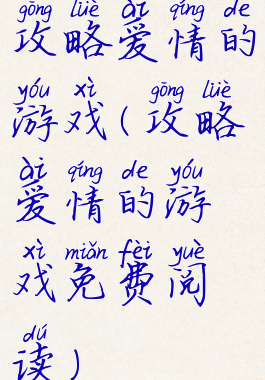 gōng lüè ài qíng de
攻略爱情的
yóu xì gōng lüè
游戏(攻略
ài qíng de yóu
爱情的游
xì miǎn fèi yuè
戏免费阅
dú
读)